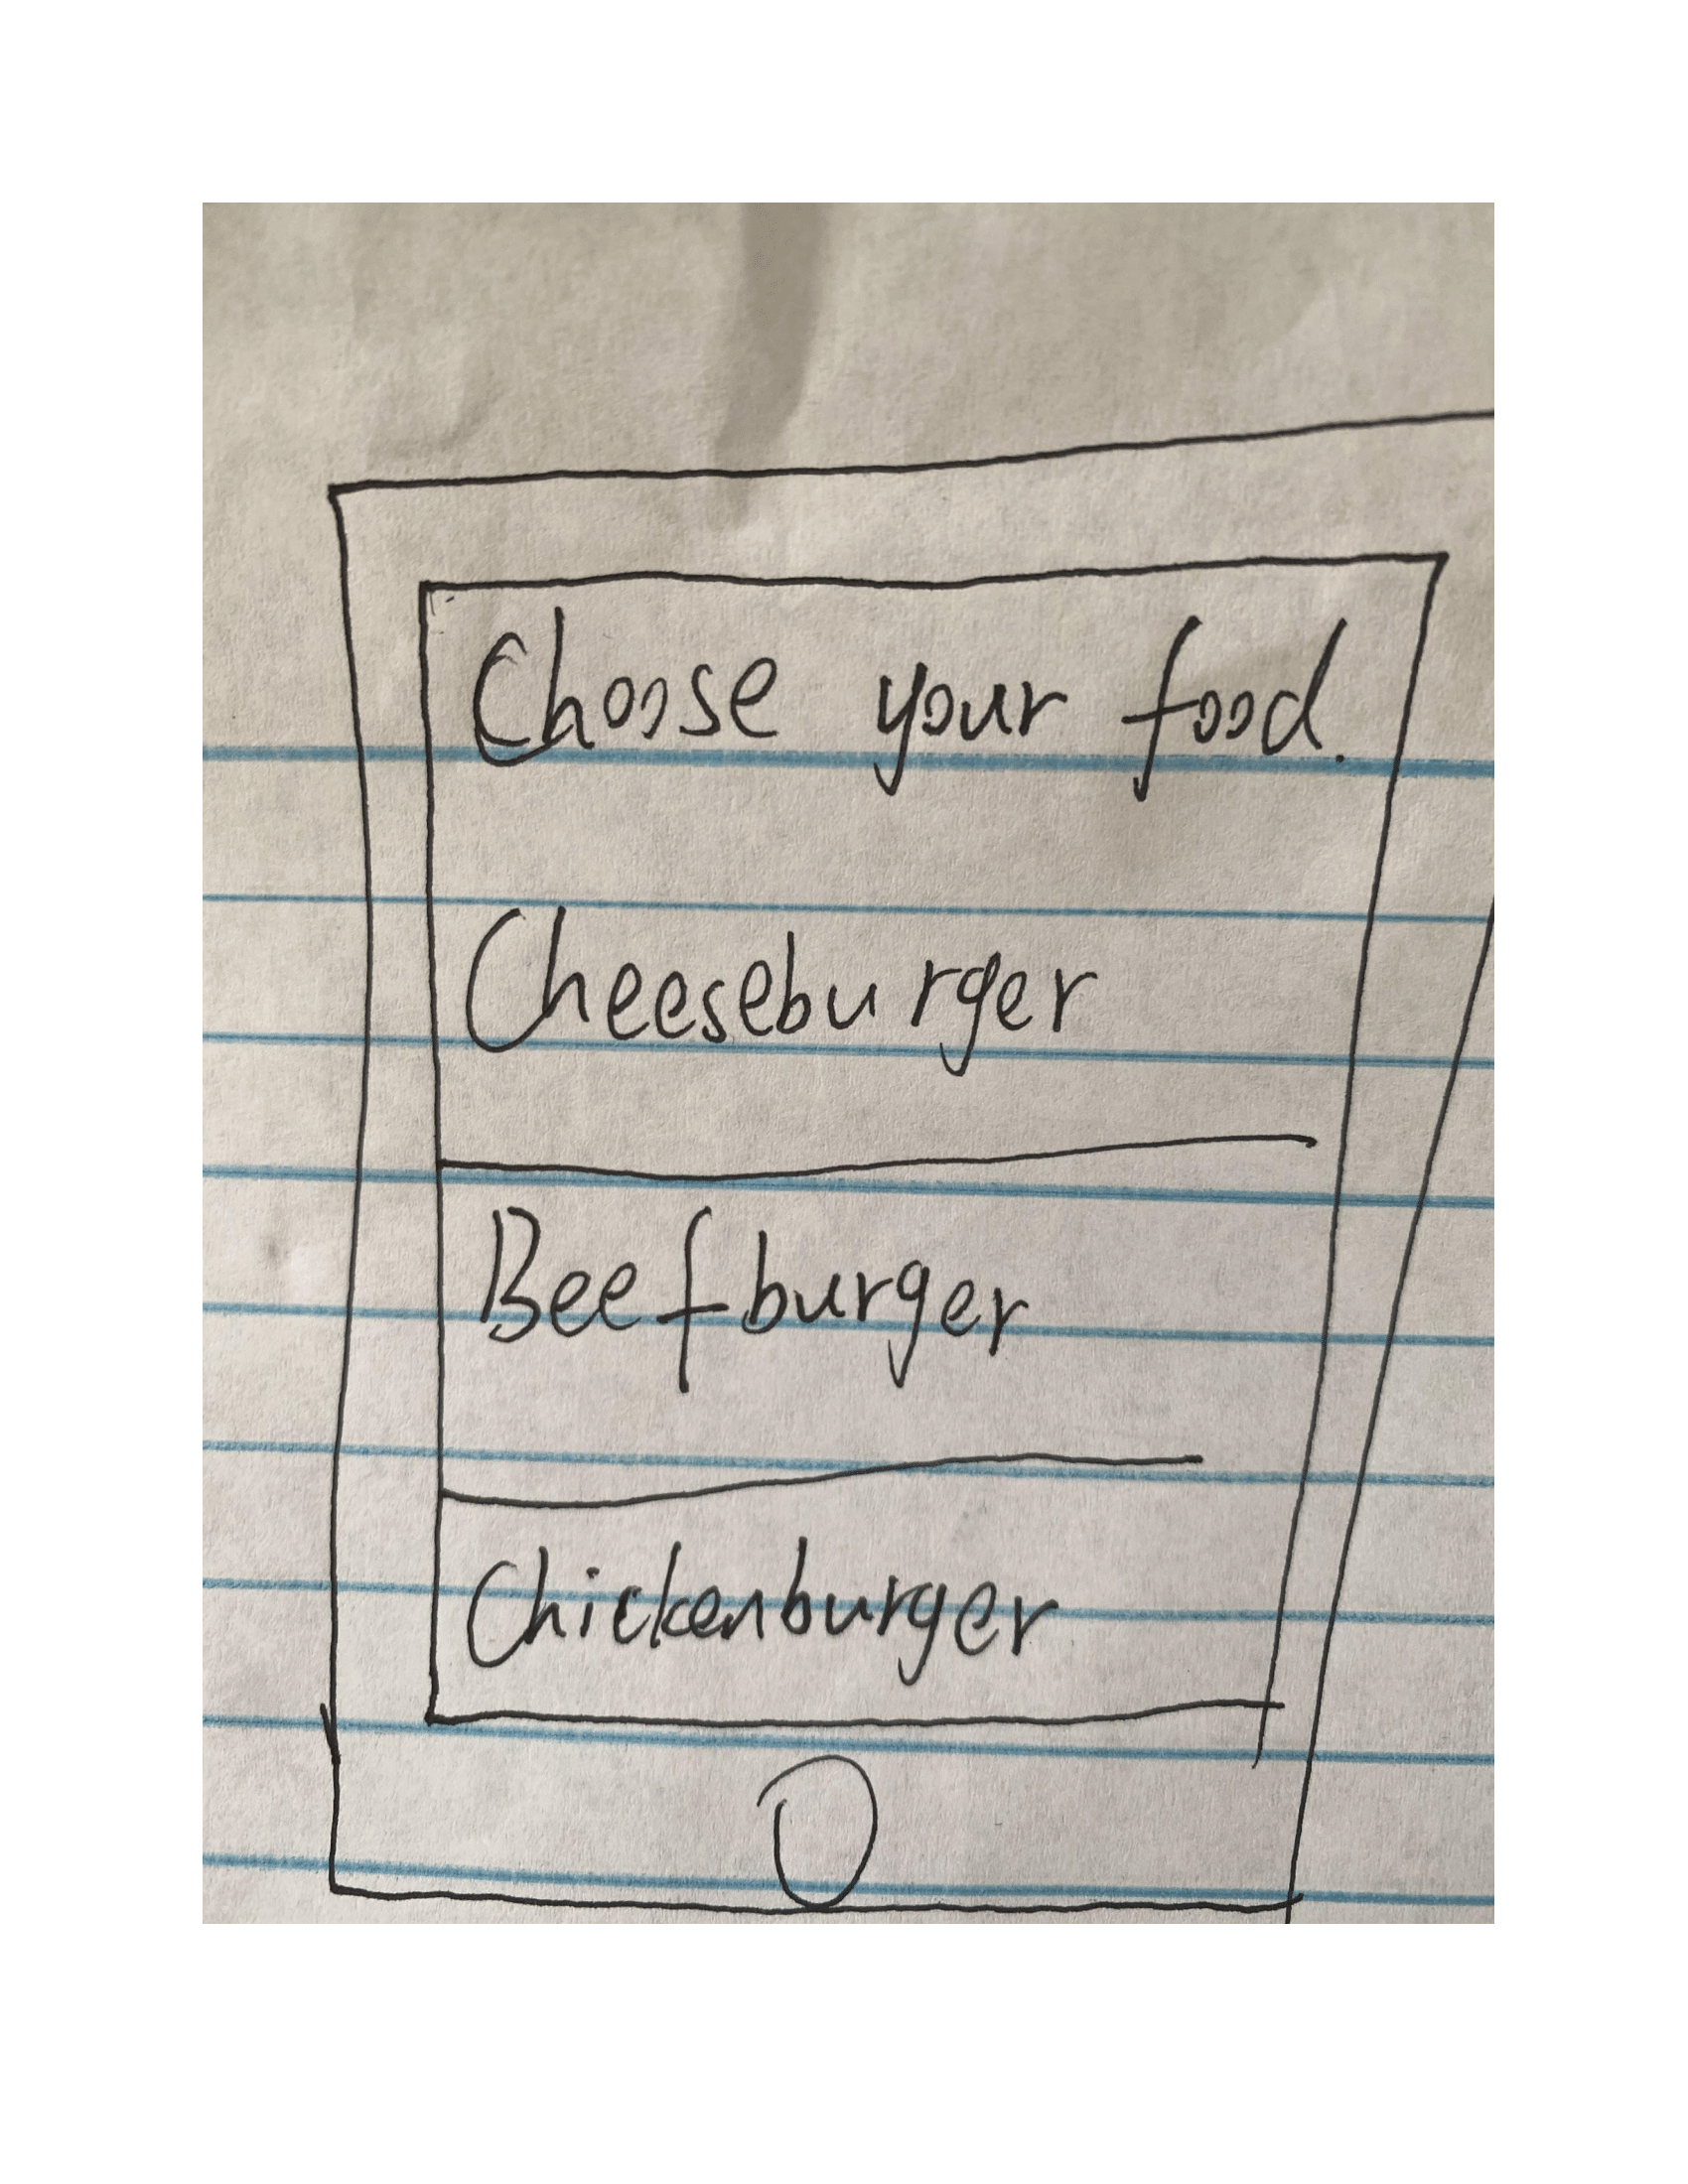 Choose your food.
Cheeseburger
Beefburger
Chickenburger